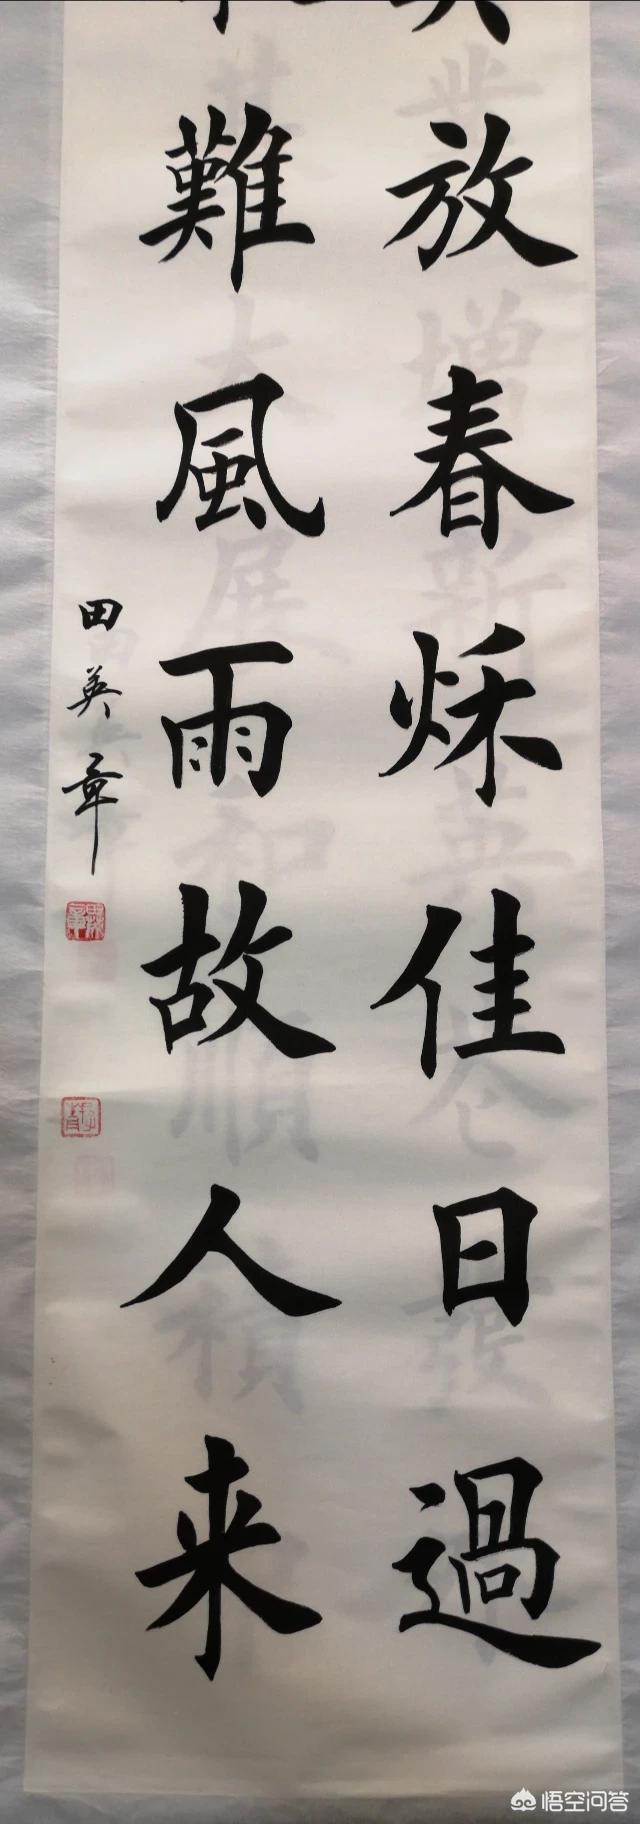 放春秌佳日過
難風雨故人来
田英章
悟空问答